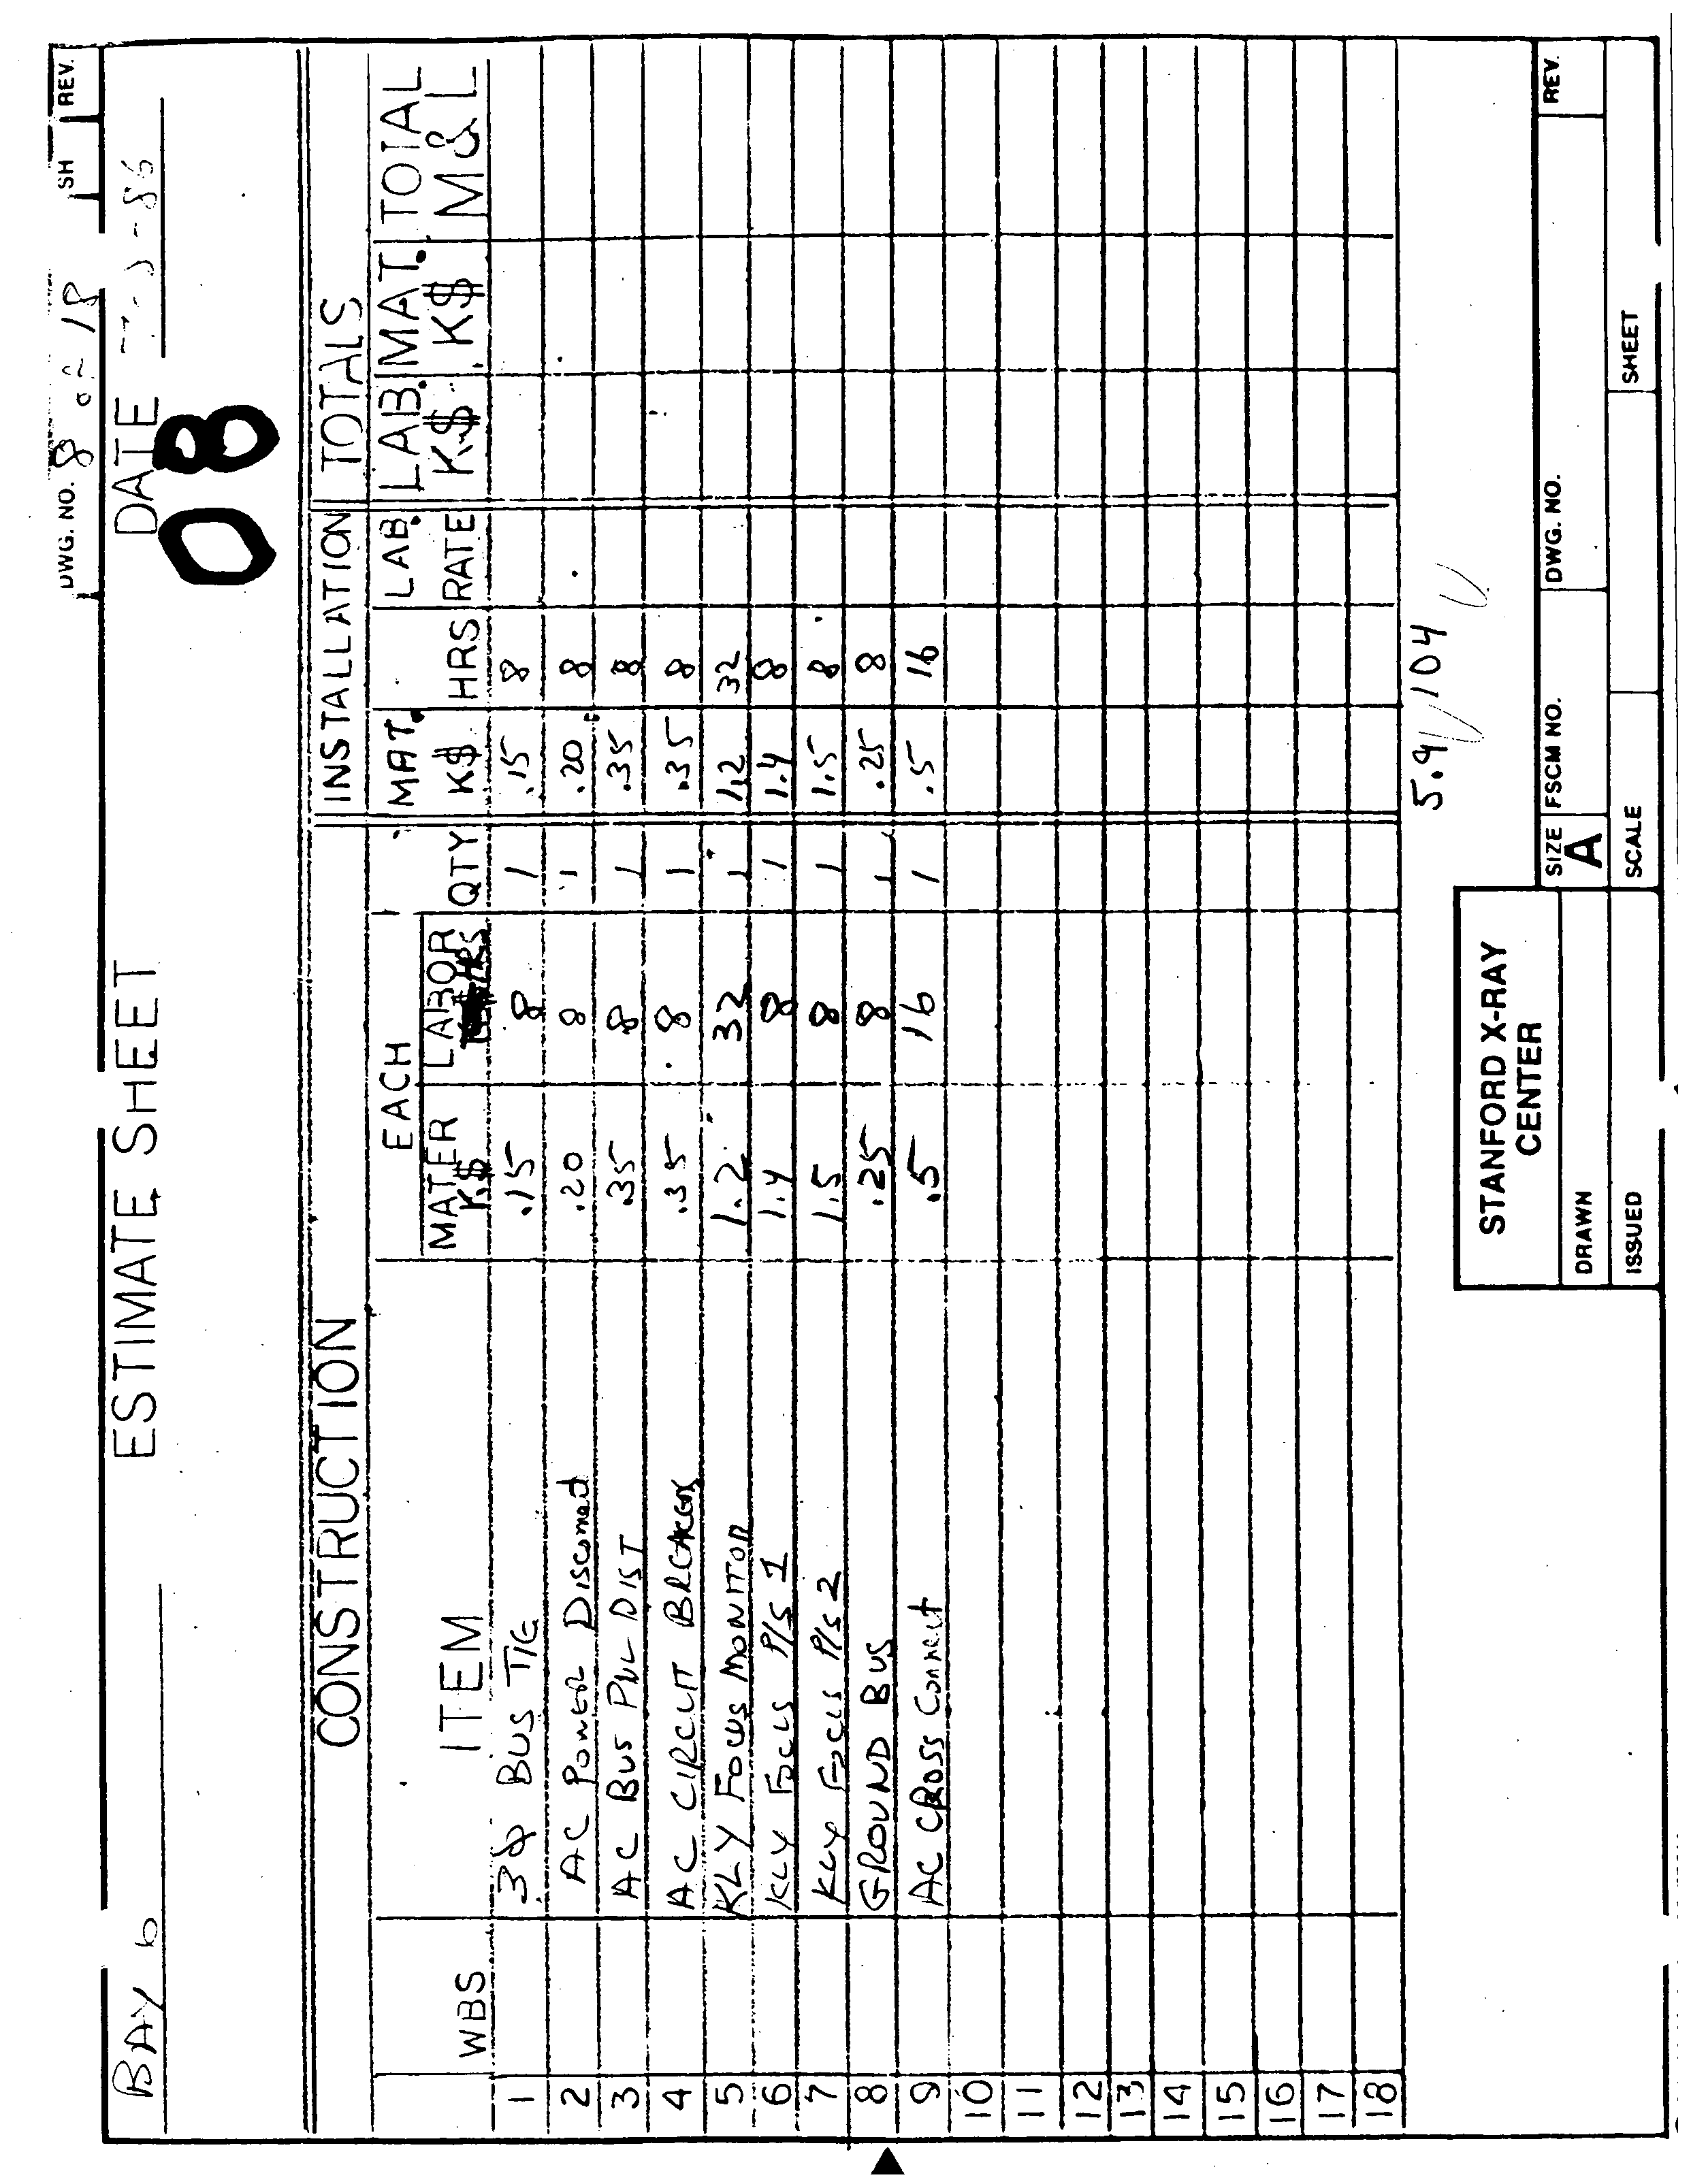 DWG. NO. 8 OF 18 SH REV.
BAY 6 ESTIMATE SHEET DATE
08
CONSTRUCTION INSTALLATION TOTALS
EACH MAT. LAB. LAB. MAT. TOTAL
WBS ITEM MATER K$ LABOR HRS QTY K$ HRS RATE K$ K$ M&L
1 3φ BUS TIE .15 8 1 .15 8
2 AC POWER Disconnect .20 8 1 .20 8
3 AC BUS PNL DIST .35 8 1 .35 8
4 AC CIRCUIT BREAKER .35 8 1 .35 8
5 KLY FOCUS MONITOR 1.2 32 1 1.2 32
6 KLY FOCUS P/S 1 1.4 8 1 1.4 8
7 KLY FOCUS P/S 2 1.5 8 1 1.5 8
8 GROUND BUS .25 8 1 .25 8
9 AC CROSS Connect .5 16 1 .5 16
10
11
12
13
14
15
16
17
18
5.9 104
STANFORD X-RAY
CENTER
SIZE A FSCM NO. DWG. NO. REV.
DRAWN
ISSUED SCALE SHEET